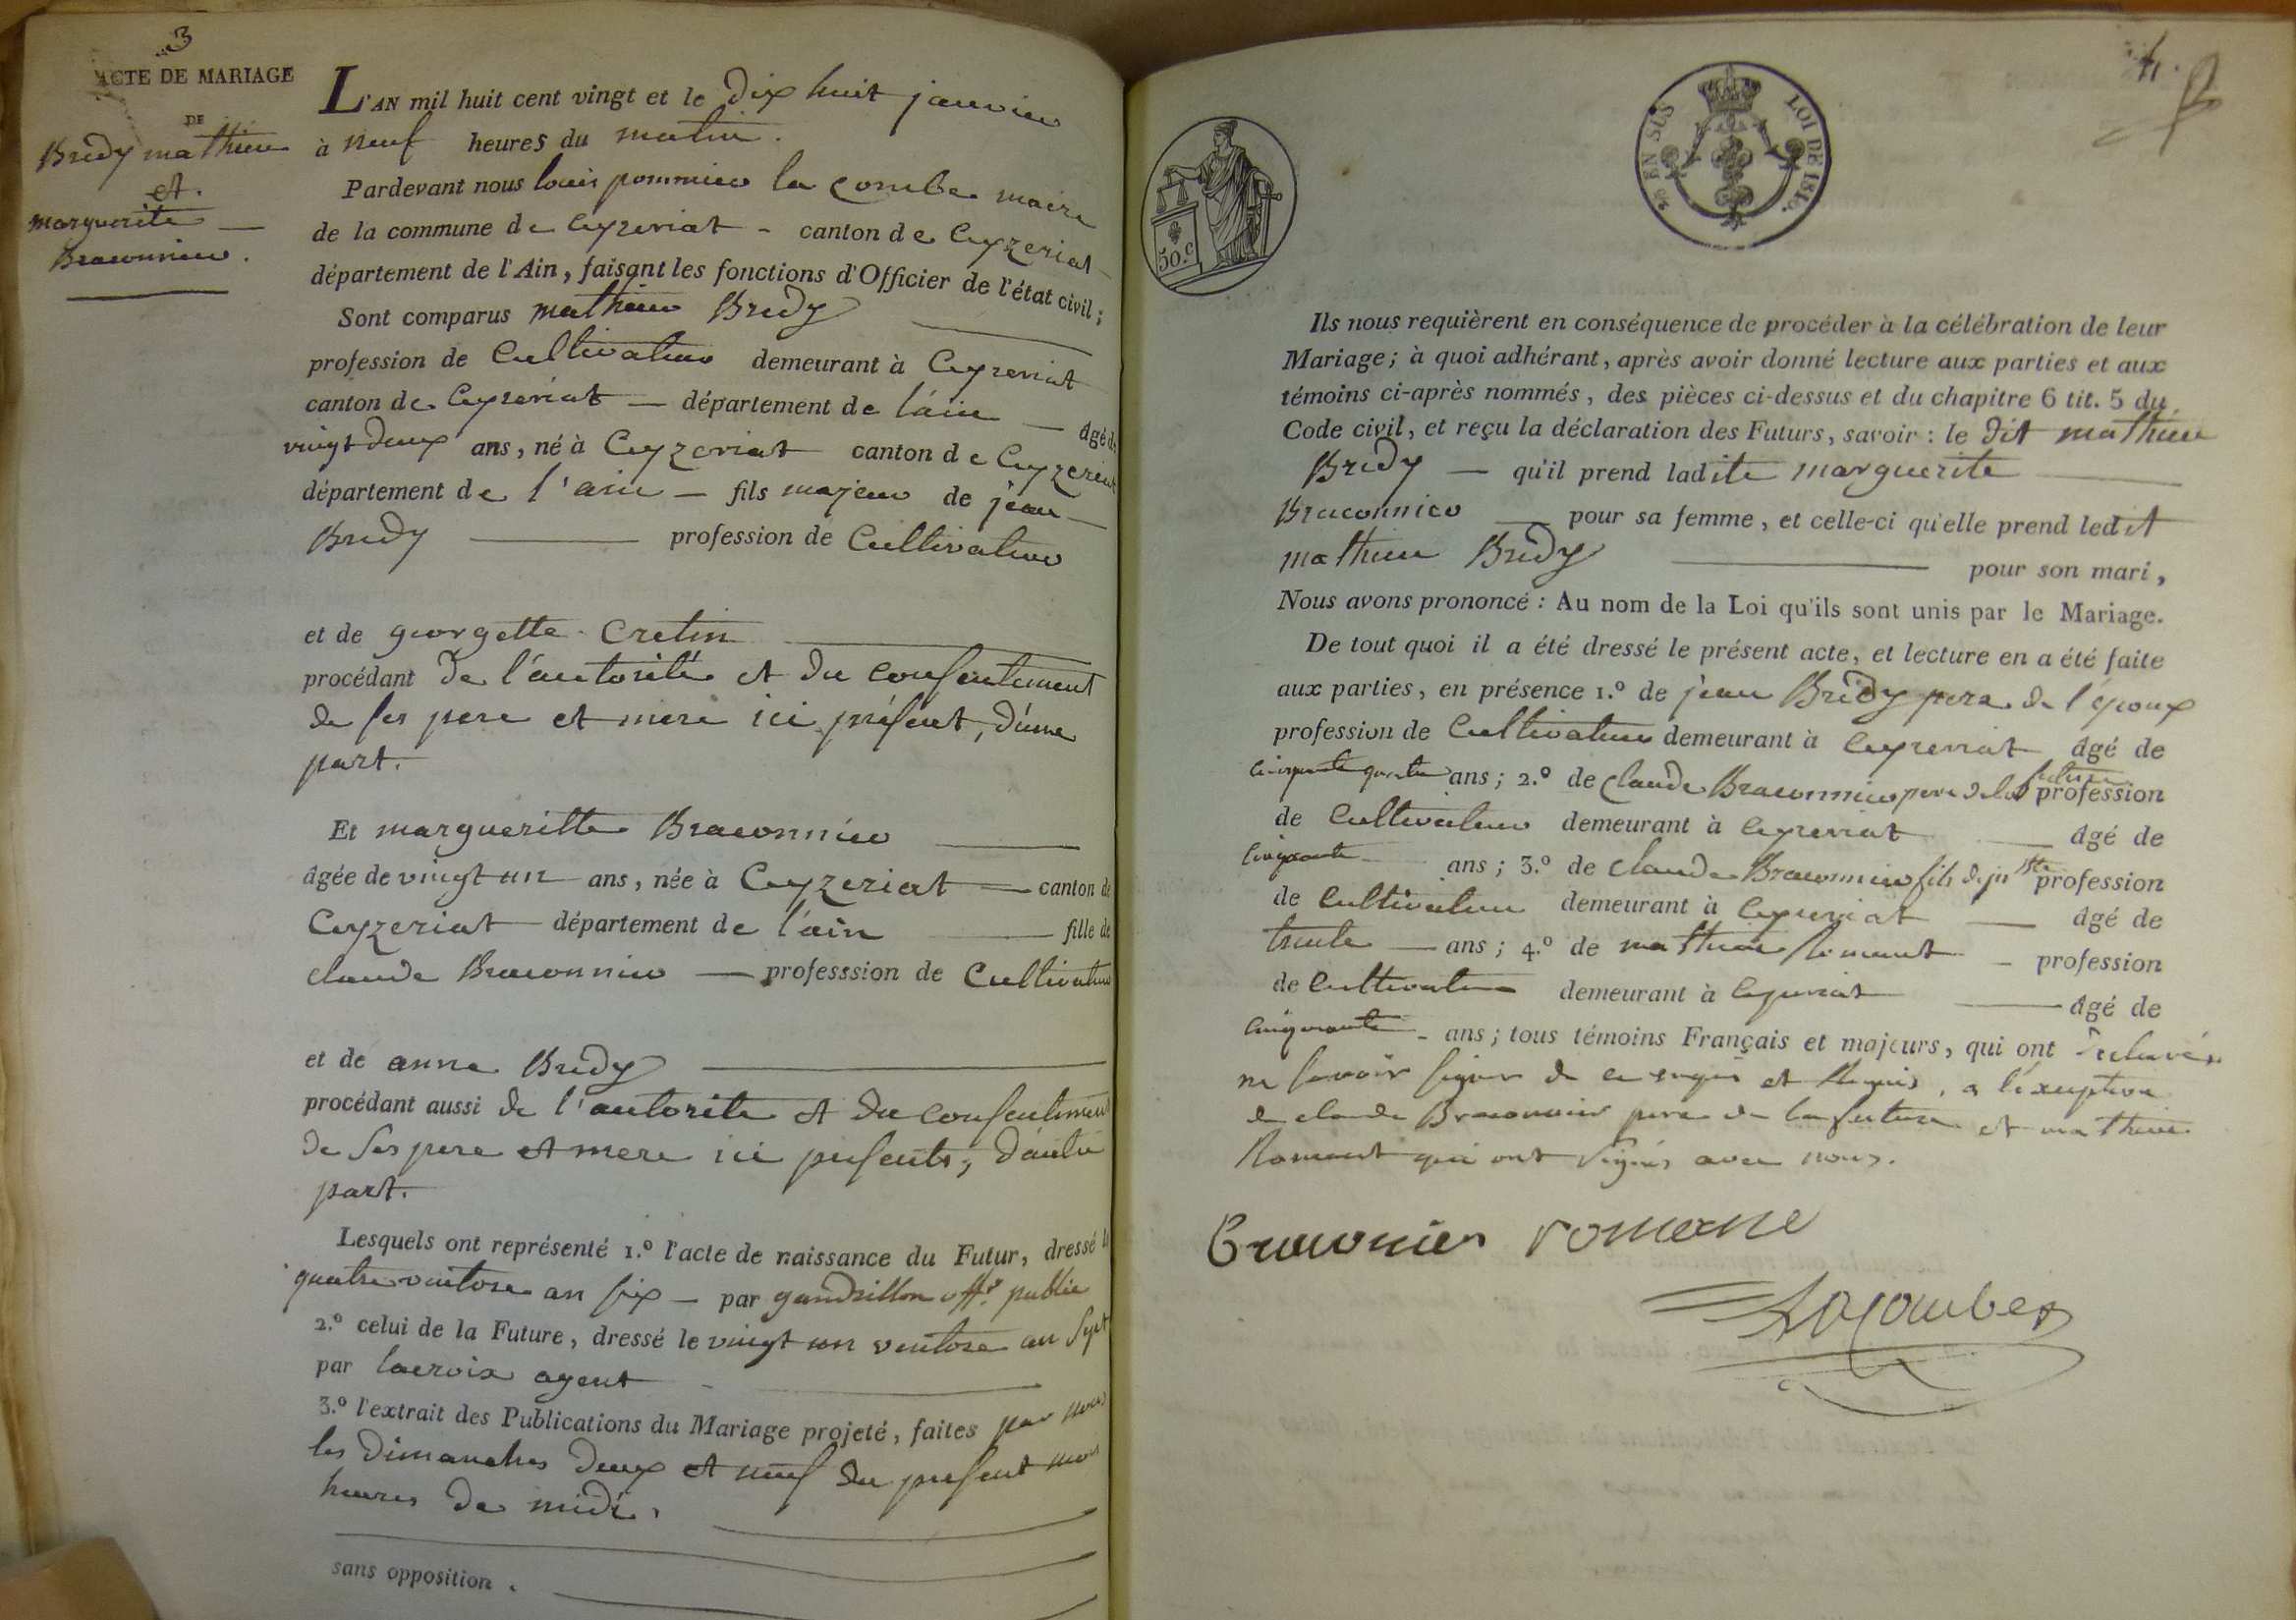 3
ACTE DE MARIAGE
DE
Bredy mathieu
et.
marguerite
Braconnier.
L'AN mil huit cent vingt et le dix huit janvier
à neuf heures du matin.
Pardevant nous louis pommier la combe maire
de la commune de Ceyzeriat - canton de Ceyzeriat
département de l'Ain, faisant les fonctions d'Officier de l'état civil;
Sont comparus mathieu Bredy
profession de Cultivateur demeurant à Ceyzeriat
canton de Ceyzeriat — département de l'ain — âgé de
vingt deux ans, né à Ceyzeriat canton de Ceyzeriat
département de l'ain — fils majeur de jean
Bredy — profession de Cultivateur
et de georgette Cretin
procédant de l'autorité et du consentement
de ses pere et mere ici présent, d'une
part.
Et margueritte Braconnier
âgée de vingt un ans, née à Ceyzeriat — canton de
Ceyzeriat département de l'ain — fille de
claude Braconnier — professsion de Cultivateur
et de anne Bredy
procédant aussi de l'autorité et du consentement
de ses pere et mere ici presents, d'autre
part.
Lesquels ont représenté 1.º l'acte de naissance du Futur, dressé le
quatre ventose an six — par gandrillon offr. public
2.º celui de la Future, dressé le vingt un ventose an sept
par lacroix agent
3.º l'extrait des Publications du Mariage projeté, faites par nous
les dimanches deux et neuf du present mois
heures de midi.
sans opposition.
4.
50.c
EN SUS LOI DE 1816.
Ils nous requièrent en conséquence de procéder à la célébration de leur
Mariage; à quoi adhérant, après avoir donné lecture aux parties et aux
témoins ci-après nommés, des pièces ci-dessus et du chapitre 6 tit. 5 du
Code civil, et reçu la déclaration des Futurs, savoir : le dit mathieu
Bredy — qu'il prend ladite marguerite
Braconnier — pour sa femme, et celle-ci qu'elle prend ledit
mathieu Bredy — pour son mari,
Nous avons prononcé : Au nom de la Loi qu'ils sont unis par le Mariage.
De tout quoi il a été dressé le présent acte, et lecture en a été faite
aux parties, en présence 1.º de jean Bredy pere de l'époux
profession de Cultivateur demeurant à Ceyzeriat âgé de
cinquante quatre ans; 2.º de claude Braconnier pere de la future profession
de Cultivateur demeurant à Ceyzeriat — âgé de
cinquante ans; 3.º de claude Braconnier fils de jn bte profession
de Cultivateur demeurant à Ceyzeriat — âgé de
trente — ans; 4.º de mathieu Romant — profession
de Cultivateur demeurant à Ceyzeriat — âgé de
cinquante - ans; tous témoins Français et majeurs, qui ont déclarés
ne savoir signer de ce enquis et Requis, a l'exception
de claude Braconnier pere de la future et mathieu
Romant qui ont signés avec nous.
Braconnier romane
Lacombe